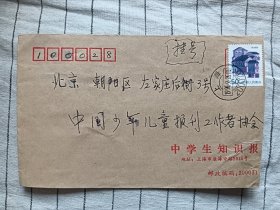 100028
挂号
北京 朝阳区 左家庄后街3号
中国少年儿童报刊工作者协会
中学生知识报
邮政编码:200051